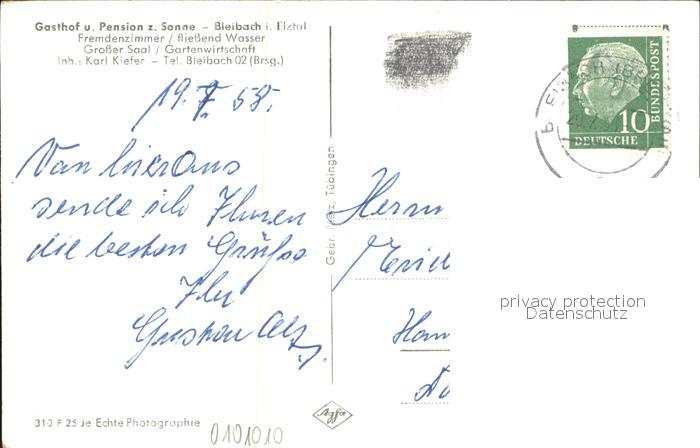 Gasthof u. Pension z. Sonne – Bleibach i. Elztal
Fremdenzimmer / fließend Wasser
Großer Saal / Gartenwirtschaft
Inh.: Karl Kiefer – Tel. Bleibach 02 (Brsg.)
19. 7. 58.
Von hier aus
sende ich Ihnen
die besten Grüße
Ihr
Gustav
310 F 25 Je Echte Photographie
0101010
Gebr. Metz, Tübingen
Agfa
Herrn
10
DEUTSCHE
BUNDESPOST
privacy protection
Datenschutz